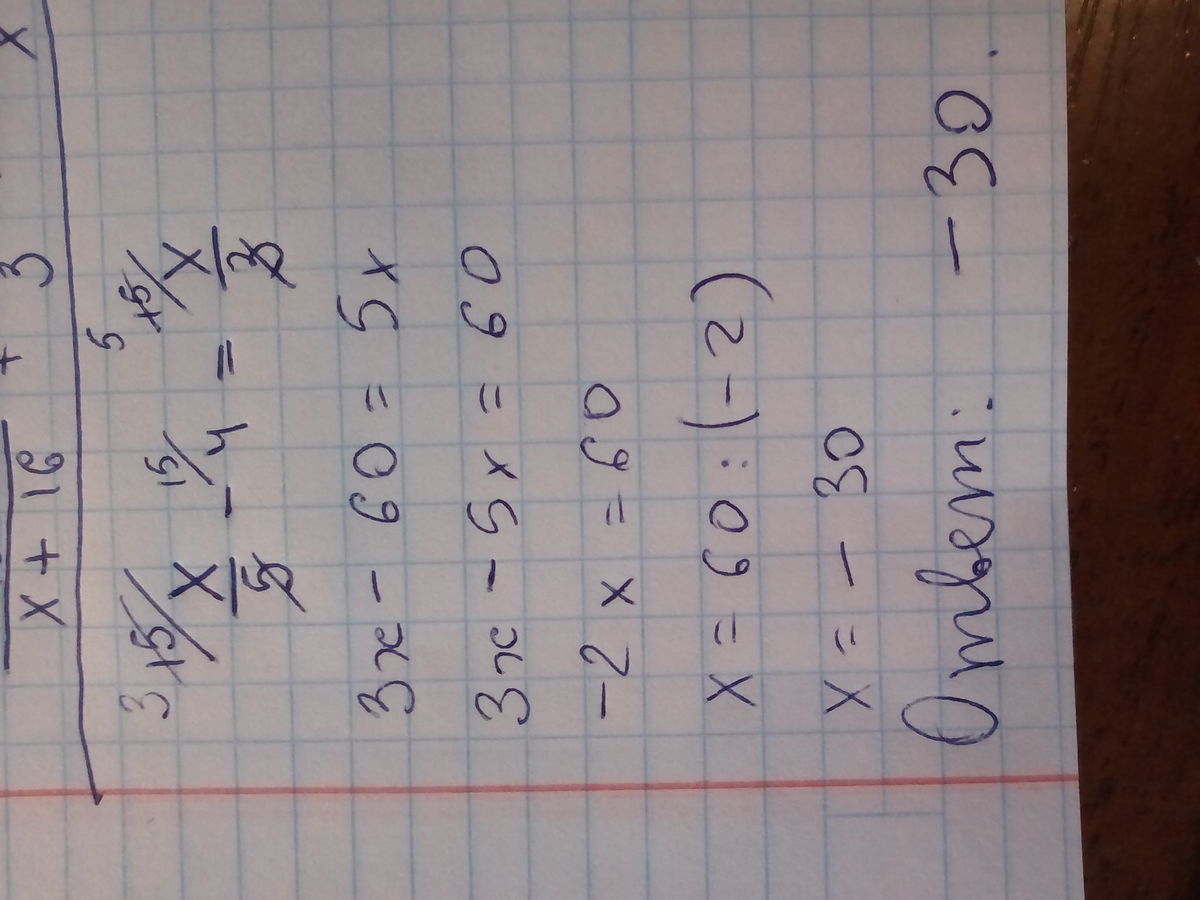 x + 16 + 3 x
3 15/ x/5 - 15/ 4 = 5 15/ x/3
3x - 60 = 5x
3x - 5x = 60
-2x = 60
x = 60 : (-2)
x = - 30
Ответ: - 30.